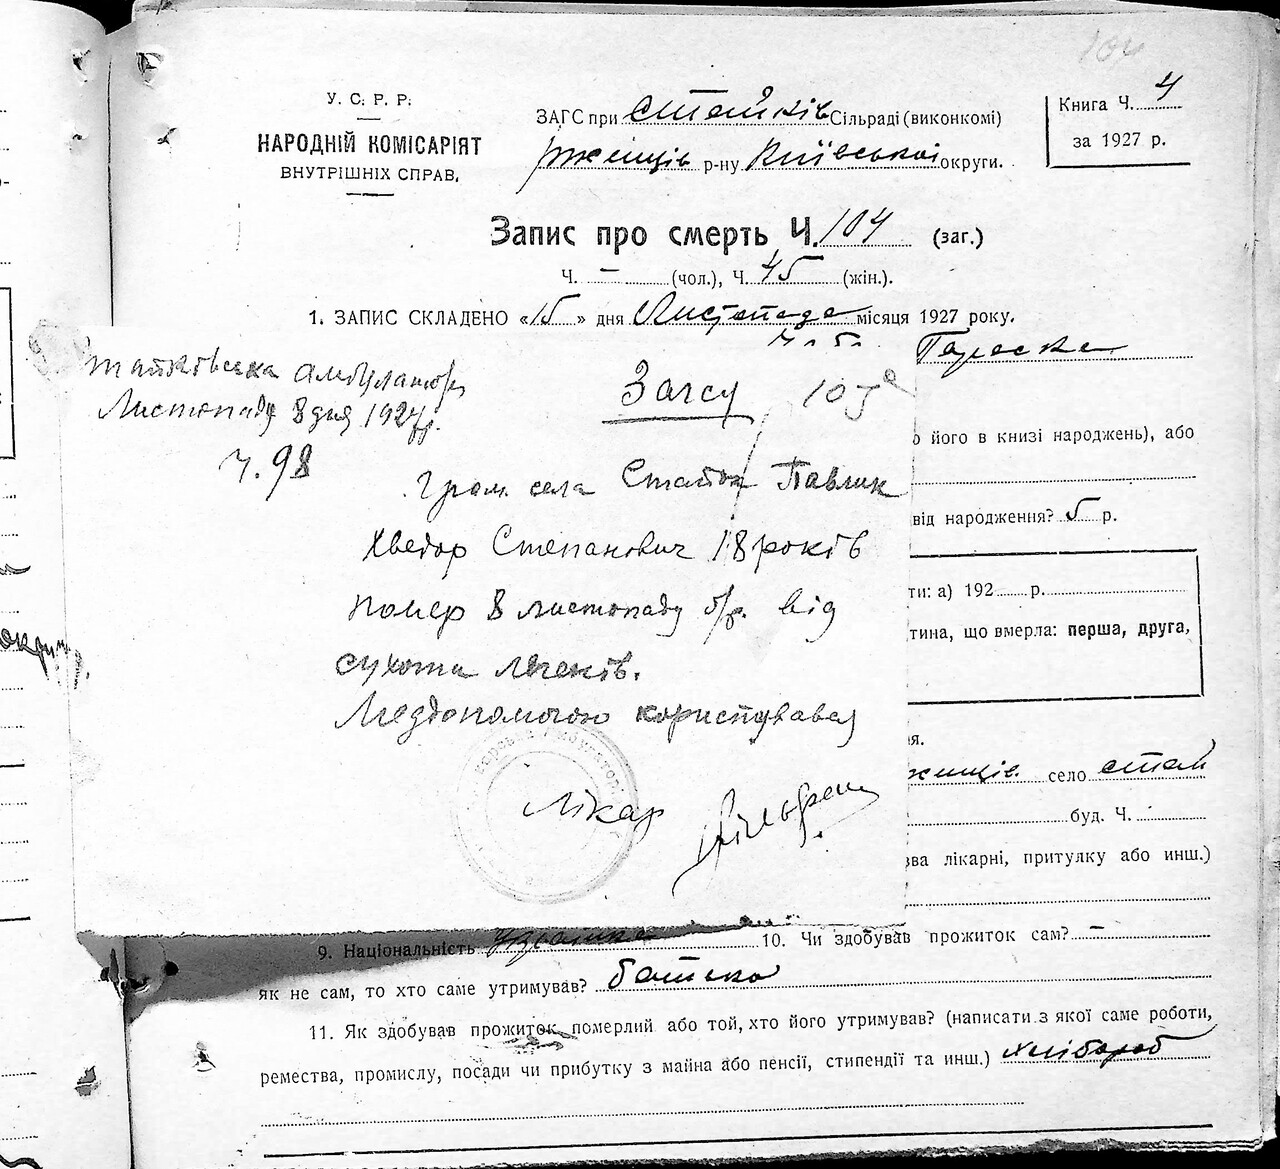 104
У. С. Р. Р.
НАРОДНІЙ КОМІСАРІЯТ
ВНУТРІШНІХ СПРАВ.
ЗАГС при Стайків Сільраді (виконкомі)
Ржищів р-ну Київської округи.
Книга Ч. 4
за 1927 р.
Запис про смерть Ч. 104 (заг.)
Ч. – (чол.), Ч. 45 (жін.).
1. ЗАПИС СКЛАДЕНО «15» дня Листопада місяця 1927 року.
Параска
о його в книзі народжень), або
від народження? 5 р.
ти: а) 192 р.
тина, що вмерла: перша, друга,
я.
жищів село Стай
буд. Ч.
зва лікарні, притулку або инш.)
Стайківська Амбулаторія
Листопаду 8 дня 1927 р.
ч. 98
Загсу 105
Гром. села Стайок Павлик
Хведор Степанович 18 років
помер 8 листопаду б/р. від
сухоти легенів.
Меддопомогою користувався
Лікар
9. Національність українка 10. Чи здобував прожиток сам? –
як не сам, то хто саме утримував? батько
11. Як здобував прожиток померлий або той, хто його утримував? (написати з якої саме роботи,
ремества, промислу, посади чи прибутку з майна або пенсії, стипендії та инш.) хлібороб